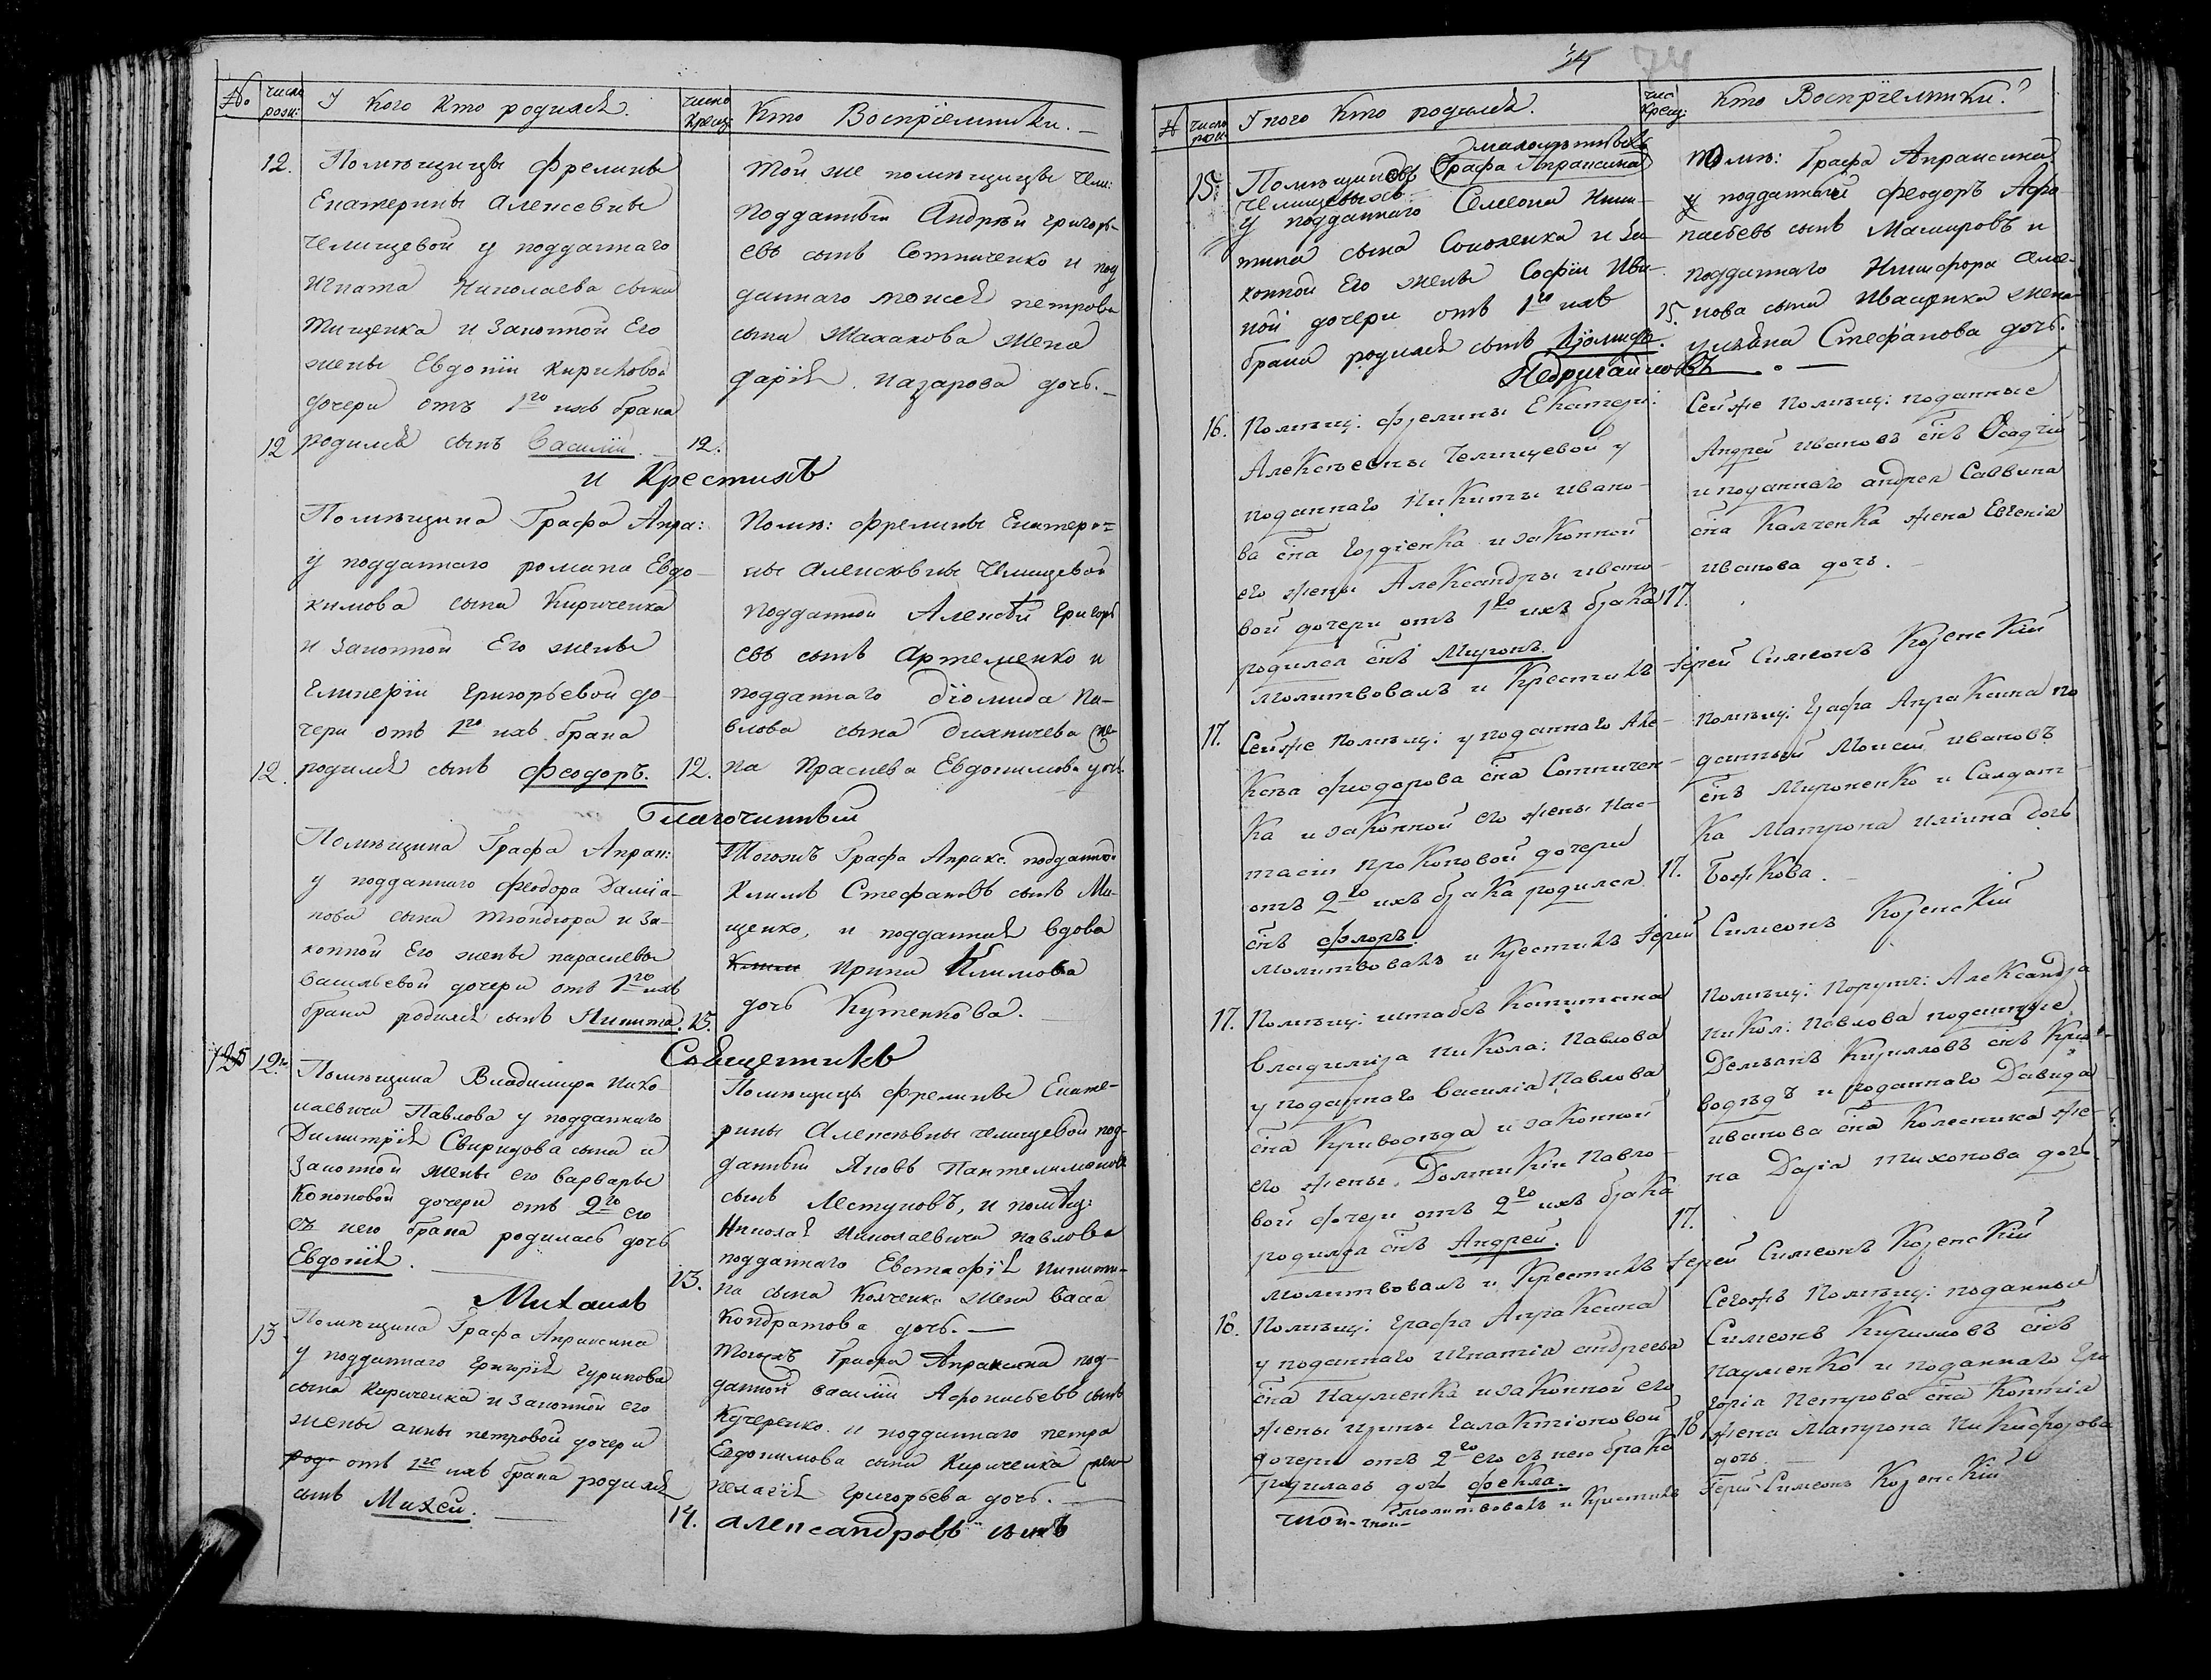 №. число рожд: У Кого Кто родился. число Крещ: Кто Воспріемники.
12. Помѣщицы фрелины
Екатерины Алексевны
Челищевой у подданнаго
Игната Николаева сына
Тищенка и Законной Его
жены Евдокіи Кириловой
дочери отъ 1го ихъ брака
12 родился сынъ Василій. 12.
Той же помѣщицы Чели:
подданный Андрѣй григорь-
евъ сынъ Сотниченко и под
даннаго моисея петрова
сына Малахова жена
дарія назарова дочь.
и Крестилъ
Помѣщика Графа Апра:
у подданнаго романа Евдо-
кимова сына Кириченка
и Законной Его жены
Гликеріи григорьевой до-
чери отъ 1го ихъ брака
12. родился сынъ Феодоръ. 12.
Помѣ: фрелины Екатери=
ны Алексѣвны Челищевой
подданной Алексѣй григорь
евъ сынъ Артеменко и
подданнаго діомида па-
влова сына жe-
на Праскева Евдокимова дочь
Благочинный
Помѣщика Графа Апрак:
у подданнаго Феодора Даміа-
нова сына и За-
конной Его жены параскевы
васильевой дочери отъ 1го ихъ
брака родился сынъ Никита. 13.
Тогожъ Графа Апракс. подданной
Климъ Стефановъ сынъ Ми-
щенко, и подданная вдова
Ирина Климова
дочь Кутенкова.
Священникъ
12. Помѣщика Владимира Нико
лаевича Павлова у подданнаго
Димитрія Свиридова сына и
Законной жены его варвары
Кононовой дочери отъ 2го его
съ нею брака родилась дочь
Евдокія. 13.
Помѣщицы фрелины Екате-
рины Алексѣвны челищевой под-
данный Яковъ Пантелимоновъ
сынъ Лестуновъ, и помѣщ:
Николая Николаевича павлова
подданнаго Евстафія никити-
на сына Колченка жена васса
Кондратова дочь.
Михаилъ
13. Помѣщика Графа Апраксина
у подданнаго григорія гурикова
сына Кириченка и Законной его
жены анны петровой дочери
отъ 1го ихъ брака родился
сынъ Михей. 14.
Тогожъ Графа Апраксина под-
данной василій Афонасьевъ сынъ
Кучеренко и подданнаго петра
Евдокимова сына Кириченка жена
пелагія григорьева дочь.
александровъ сынъ
74
№ число рож: У кого Кто родился. чис Крещ: Кто Воспріемники.
малолѣтныхъ
15. Помѣщиковъ Графа Апраксина
Челищевыхъ
у подданнаго Симеона Ники-
тина сына Соколенка и За-
конной Его жены Софіи Ива-
ной дочери отъ 1го ихъ
брака родился сынъ Діомидъ. 15.
помѣ: Графа Апраксина
подданный феодоръ Афо
насьевъ сынъ Машировъ и
подданнаго Никифора
нова сына Иващенка жена
уліяна Стефанова дочь.
16. Помѣщ: фрелины Екатери:
Алексѣевны Челищевой у
поданнаго Никиты ивано-
ва сна Гордіенка и законной
его жены Александры ивано-
вой дочери отъ 1го ихъ брака 17.
родился снъ Миронъ.
Сейже Помѣщ: поданные
Андрей ивановъ снъ Осадчій
и поданнаго андрея Саввина
сна Калченка жена Евгенія
иванова дочь.
молитвовалъ и Крестилъ Іерей Симеонъ Коренскій
17. Сейже Помѣщ: у поданнаго Але-
Ксѣя феодорова сна Сотничен-
Ка и законной его жены Нас-
тасіи Прокоповой дочери
отъ 2го ихъ брака родился 17.
снъ Флоръ.
Помѣщ: Графа Апраксина по
данный Моисей ивановъ
снъ Мироненко и Салдат-
ка Матрона иліина дочь
Божкова.
молитвовалъ и Крестилъ Іерей Симеонъ Коренскій
17. Помѣщ: штабсъ Капитана
Владиміра Никола: Павлова
у поданнаго Василія Павлова
сна Криводѣда и законной
его жены Домникіи Павло-
вой дочери отъ 2го ихъ брака 17.
родился снъ Андрей.
Помѣщ: Поруч: Александра
Никол: Павлова поданные
Демьянъ Кирилловъ снъ Криво-
водѣдъ и поданнаго Давида
иванова сна Колесника же-
на Дарія тихонова дочь.
молитвовалъ и Крестилъ Іерей Симеонъ Коренскій
18. Помѣщ: Графа Апраксина
у поданнаго игнатія андреева
сна Науменка и законной его
жены ирины галактіоновой 18
дочери отъ 2го его съ нею брака
родилась дочь Фекла.
Сегожъ Помѣщ: поданные
Симеонъ Кириловъ снъ
Науменко и поданнаго Гри
горія Петрова сна Коптія
жена Матрона Никифорова
дочь
молитвовалъ и Крестилъ Іерей Симеонъ Коренскій